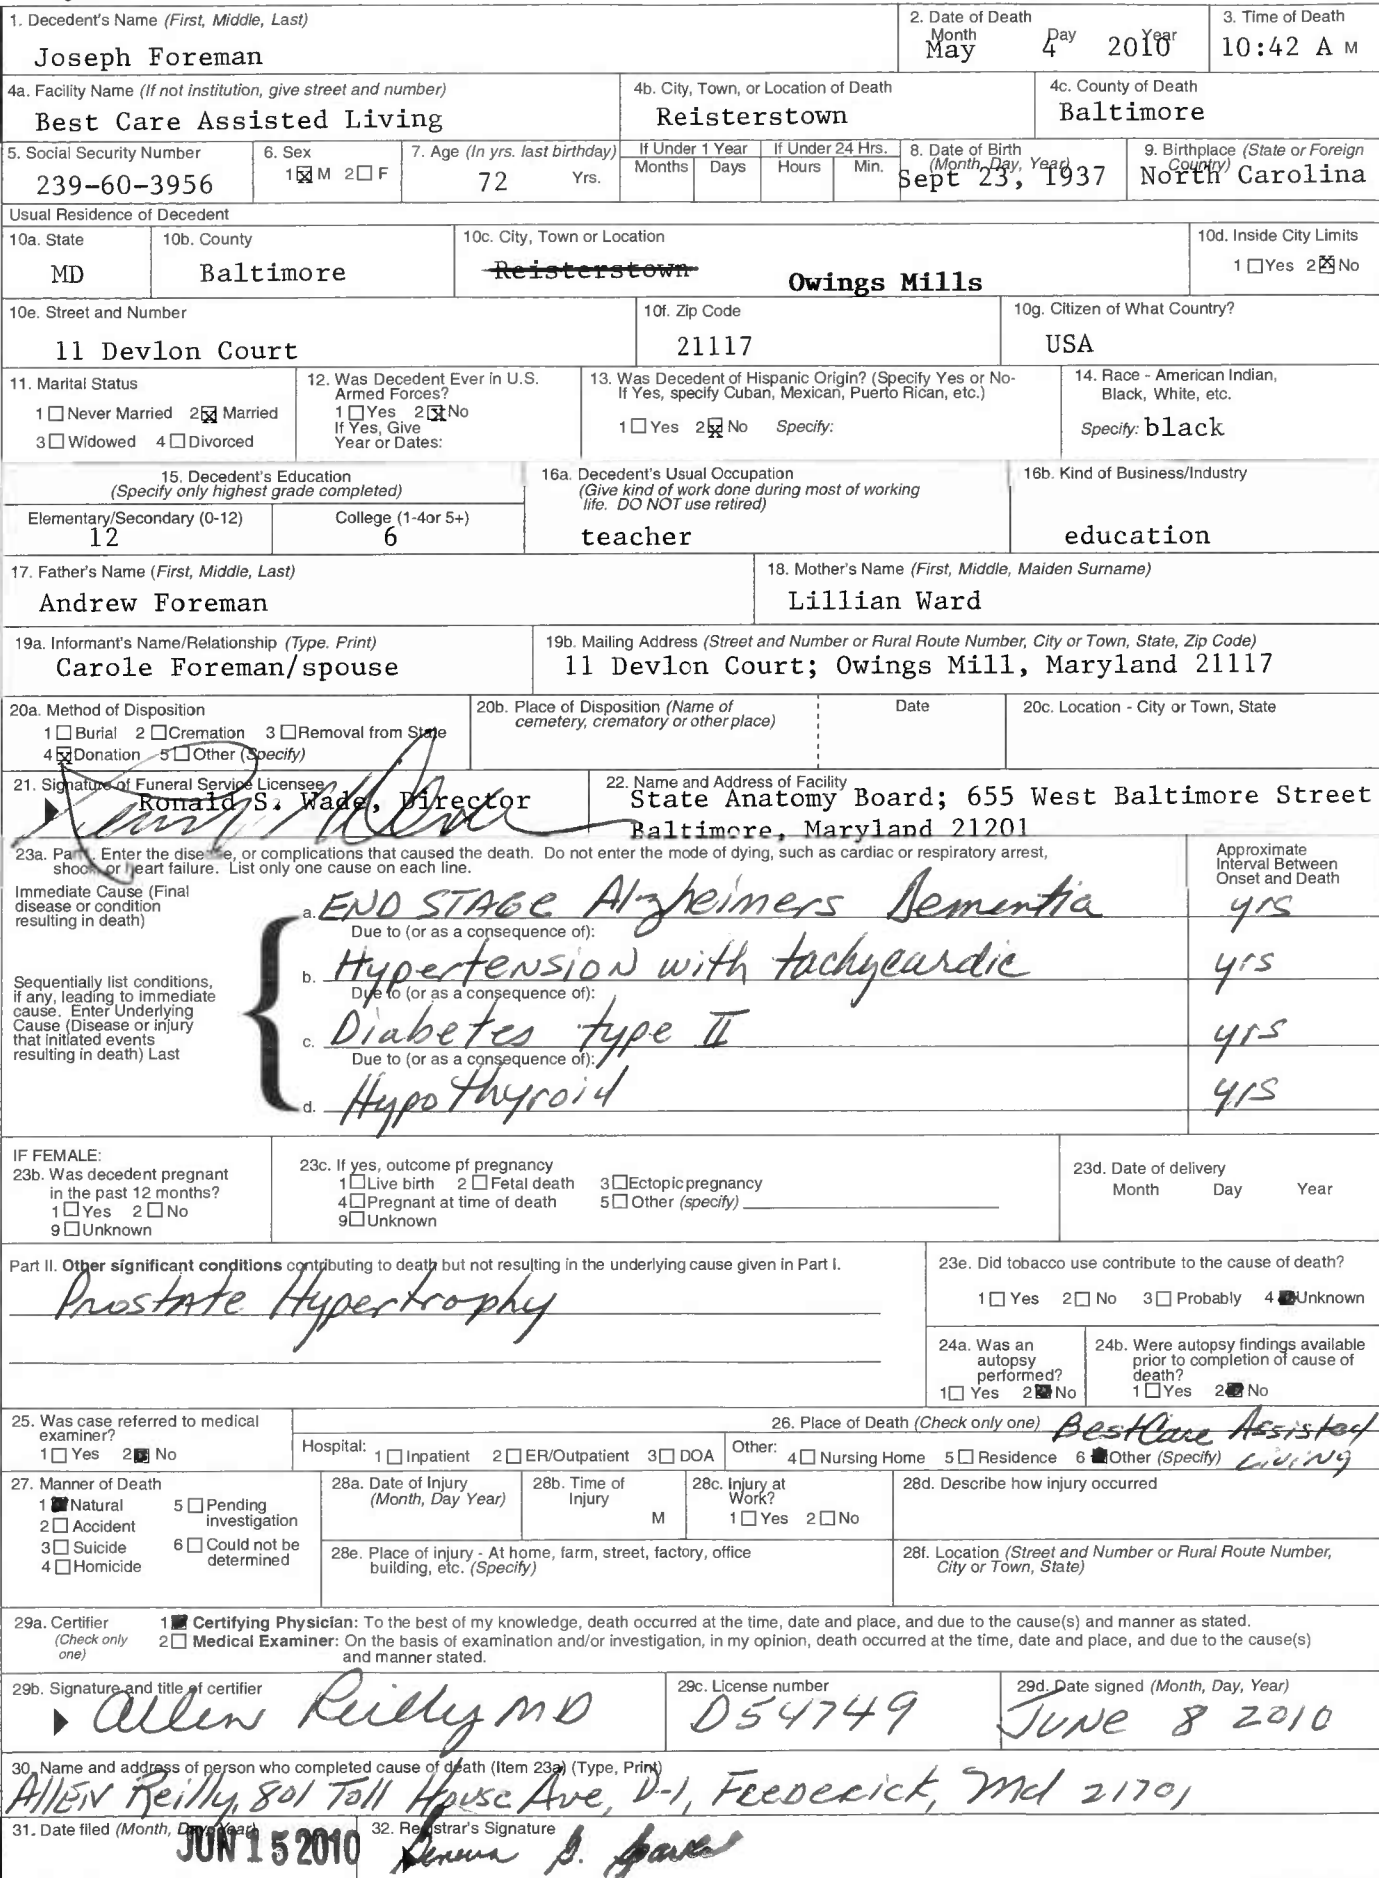 1. Decedent's Name (First, Middle, Last)
Joseph Foreman
2. Date of Death
Month Day Year
May 4 2010
3. Time of Death
10:42 A M
4a. Facility Name (If not institution, give street and number)
Best Care Assisted Living
4b. City, Town, or Location of Death
Reisterstown
4c. County of Death
Baltimore
5. Social Security Number
239-60-3956
6. Sex
1☒ M 2☐ F
7. Age (In yrs. last birthday)
72 Yrs.
If Under 1 Year
Months Days
If Under 24 Hrs.
Hours Min.
8. Date of Birth
(Month, Day, Year)
Sept 23, 1937
9. Birthplace (State or Foreign
Country)
North Carolina
Usual Residence of Decedent
10a. State
MD
10b. County
Baltimore
10c. City, Town or Location
Reisterstown Owings Mills
10d. Inside City Limits
1☐Yes 2☒No
10e. Street and Number
11 Devlon Court
10f. Zip Code
21117
10g. Citizen of What Country?
USA
11. Marital Status
1☐Never Married 2☒Married
3☐Widowed 4☐Divorced
12. Was Decedent Ever in U.S.
Armed Forces?
1☐Yes 2☒No
If Yes, Give
Year or Dates:
13. Was Decedent of Hispanic Origin? (Specify Yes or No-
If Yes, specify Cuban, Mexican, Puerto Rican, etc.)
1☐Yes 2☒No Specify:
14. Race - American Indian,
Black, White, etc.
Specify: black
15. Decedent's Education
(Specify only highest grade completed)
Elementary/Secondary (0-12)
12
College (1-4or 5+)
6
16a. Decedent's Usual Occupation
(Give kind of work done during most of working
life. DO NOT use retired)
teacher
16b. Kind of Business/Industry
education
17. Father's Name (First, Middle, Last)
Andrew Foreman
18. Mother's Name (First, Middle, Maiden Surname)
Lillian Ward
19a. Informant's Name/Relationship (Type. Print)
Carole Foreman/spouse
19b. Mailing Address (Street and Number or Rural Route Number, City or Town, State, Zip Code)
11 Devlon Court; Owings Mill, Maryland 21117
20a. Method of Disposition
1☐Burial 2☐Cremation 3☐Removal from State
4☒Donation 5☐Other (Specify)
20b. Place of Disposition (Name of
cemetery, crematory or other place)
Date
20c. Location - City or Town, State
21. Signature of Funeral Service Licensee
Ronald S. Wade, Director
22. Name and Address of Facility
State Anatomy Board; 655 West Baltimore Street
Baltimore, Maryland 21201
23a. Part I. Enter the disease, or complications that caused the death. Do not enter the mode of dying, such as cardiac or respiratory arrest,
shock, or heart failure. List only one cause on each line.
Approximate
Interval Between
Onset and Death
Immediate Cause (Final
disease or condition
resulting in death)
a. END STAGE Alzheimers Dementia yrs
Due to (or as a consequence of):
b. Hypertension with tachycardic yrs
Due to (or as a consequence of):
Sequentially list conditions,
if any, leading to immediate
cause. Enter Underlying
Cause (Disease or injury
that initiated events
resulting in death) Last
c. Diabetes type II yrs
Due to (or as a consequence of):
d. Hypo Thyroid yrs
IF FEMALE:
23b. Was decedent pregnant
in the past 12 months?
1☐Yes 2☐No
9☐Unknown
23c. If yes, outcome pf pregnancy
1☐Live birth 2☐Fetal death 3☐Ectopic pregnancy
4☐Pregnant at time of death 5☐Other (specify)
9☐Unknown
23d. Date of delivery
Month Day Year
Part II. Other significant conditions contributing to death but not resulting in the underlying cause given in Part I.
Prostate Hypertrophy
23e. Did tobacco use contribute to the cause of death?
1☐Yes 2☐No 3☐Probably 4■Unknown
24a. Was an
autopsy
performed?
1☐Yes 2■No
24b. Were autopsy findings available
prior to completion of cause of
death?
1☐Yes 2■No
25. Was case referred to medical
examiner?
1☐Yes 2■No
26. Place of Death (Check only one) Best Care Assisted
Hospital: 1☐Inpatient 2☐ER/Outpatient 3☐DOA Other: 4☐Nursing Home 5☐Residence 6■Other (Specify) Living
27. Manner of Death
1■Natural
2☐Accident
3☐Suicide
4☐Homicide
5☐Pending
investigation
6☐Could not be
determined
28a. Date of Injury
(Month, Day Year)
28b. Time of
Injury
M
28c. Injury at
Work?
1☐Yes 2☐No
28d. Describe how injury occurred
28e. Place of injury - At home, farm, street, factory, office
building, etc. (Specify)
28f. Location (Street and Number or Rural Route Number,
City or Town, State)
29a. Certifier
(Check only
one)
1■ Certifying Physician: To the best of my knowledge, death occurred at the time, date and place, and due to the cause(s) and manner as stated.
2☐ Medical Examiner: On the basis of examination and/or investigation, in my opinion, death occurred at the time, date and place, and due to the cause(s)
and manner stated.
29b. Signature and title of certifier
Allen Reilly MD
29c. License number
D54749
29d. Date signed (Month, Day, Year)
JUNE 8 2010
30. Name and address of person who completed cause of death (Item 23a) (Type, Print)
Allen Reilly, 801 Toll House Ave, D-1, Frederick, Md 21701
31. Date filed (Month, Day, Year)
JUN 15 2010
32. Registrar's Signature